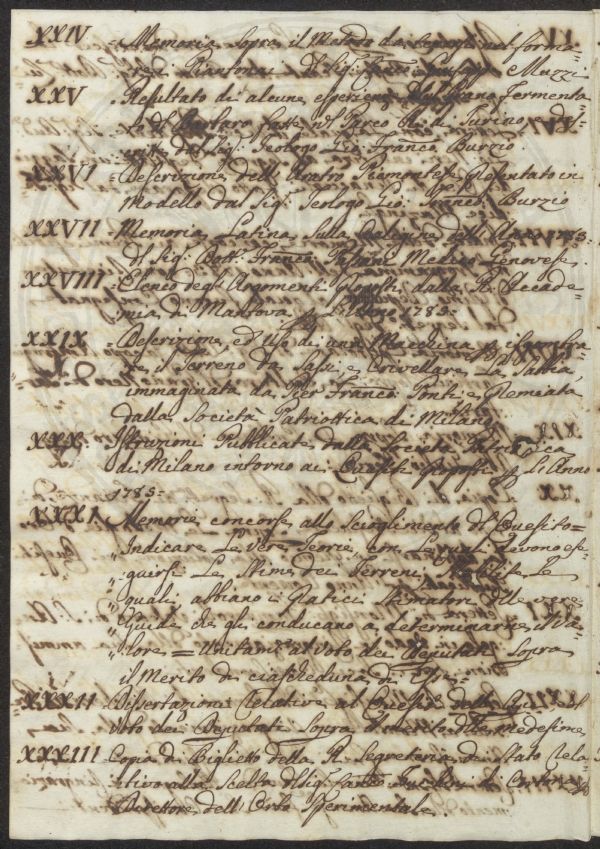 XXIV = Memoria Sopra il Metodo da tenersi nel forma-
re i Piantonai del Sig.r Muzzi
XXV = Resultato di alcune esperienze del Grano fermenta-
to di fatte nel Parco R. di Turino, e de-
scritte dal Sig.r Teologo Gio: Franco Burzio.
XXVI = Descrizione dell'Aratro Piemontese presentato in
modello dal Sig.r Teologo Gio: Franco Burzio
XXVII = Memoria Latina Sulla dell' 1783.
del Sig.r Dott.r Franco Medico Genovese.
XXVIII = Elenco degl'Argomenti proposti dalla R. Accade-
mia di Mantova p L'Anno 1785=
XXIX = Descrizione, ed Uso di una Macchina p isgombra-
re il Terreno da Sassi, e Crivellare La Sabbia,
immaginata da Pier Franco Ponti e Premiata
dalla Società Patriottica di Milano
XXX = Istruzioni Pubblicate dalla Società Patriottica
di Milano intorno ai Quesiti proposti p L'Anno
1785=
XXXI = Memorie concorse allo Scioglimento del Quesito =
" Indicare Le vere Teorie, con Le quali devono ese-
" guirsi Le Stime dei Terreni, Stabilite Le
" quali abbiano i Pratici Stimatori delle vere
" Guide che gli conducano a determinarne il Va-
" lore = Unitam.e al voto dei Deputati Sopra
il Merito di ciascheduna di Esse=
XXXII = Dissertazioni Relative al Quesito
voto dei Deputati Sopra il merito delle medesime
XXXIII = Copia di Biglietto della R. Segreteria di Stato Rela-
tivo alla Scelta del Sig.r
Direttore dell'Orto Sperimentale.